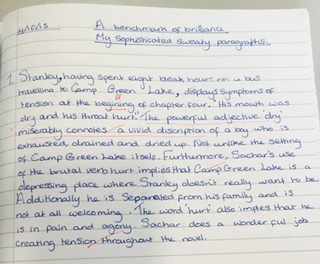 21/10/15 A benchmark of brilliance
My Sophisticated Sweaty paragraphs.
1. Stanley, having spent eight bleak hours on a bus
travelling to Camp Green Lake, displays symptoms of
tension at the begining of chapter four. 'His mouth was
dry and his throat hurt.' The powerful adjective 'dry'
miserably connotes a vivid discription of a boy who is
exhausted, drained and dried up. Not unlike the setting
of Camp Green Lake itself. Furthermore, Sachar's use
of the brutal verb hurt implies that Camp Green Lake is a
depressing place where Stanley doesn't really want to be
Additionally he is Separated from his family and is
not at all welcoming. The word 'hurt' also implies that he
is in pain and agony. Sachar does a wonderful job
creating tension throughout the novel.